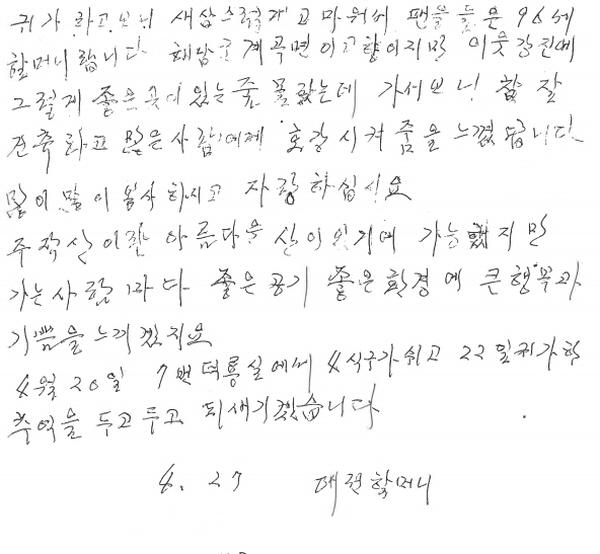 귀가 하고보니 새삼스럽게 고마워서 팬을 들은 96세
할머니랍니다 해남군 계곡면이 고향이지만 이웃 강진에
그렇게 좋은곳이 있는 줄 몰랐는데 가서보니 참 잘
건축하고 많은사람에게 호강 시켜 줌을 느꼈답니다
많이 많이 봉사하시고 자랑하십시요
주작산이란 아름다운 산이 있기에 가능했지만
가는사람마다 좋은공기 좋은환경에 큰행복과
기쁨을 느끼겠지요
4월 20일 7번 덕룡실에서 4식구가 쉬고 22일 귀가한
추억을 두고두고 되새기겠습니다
4. 27 대전할머니